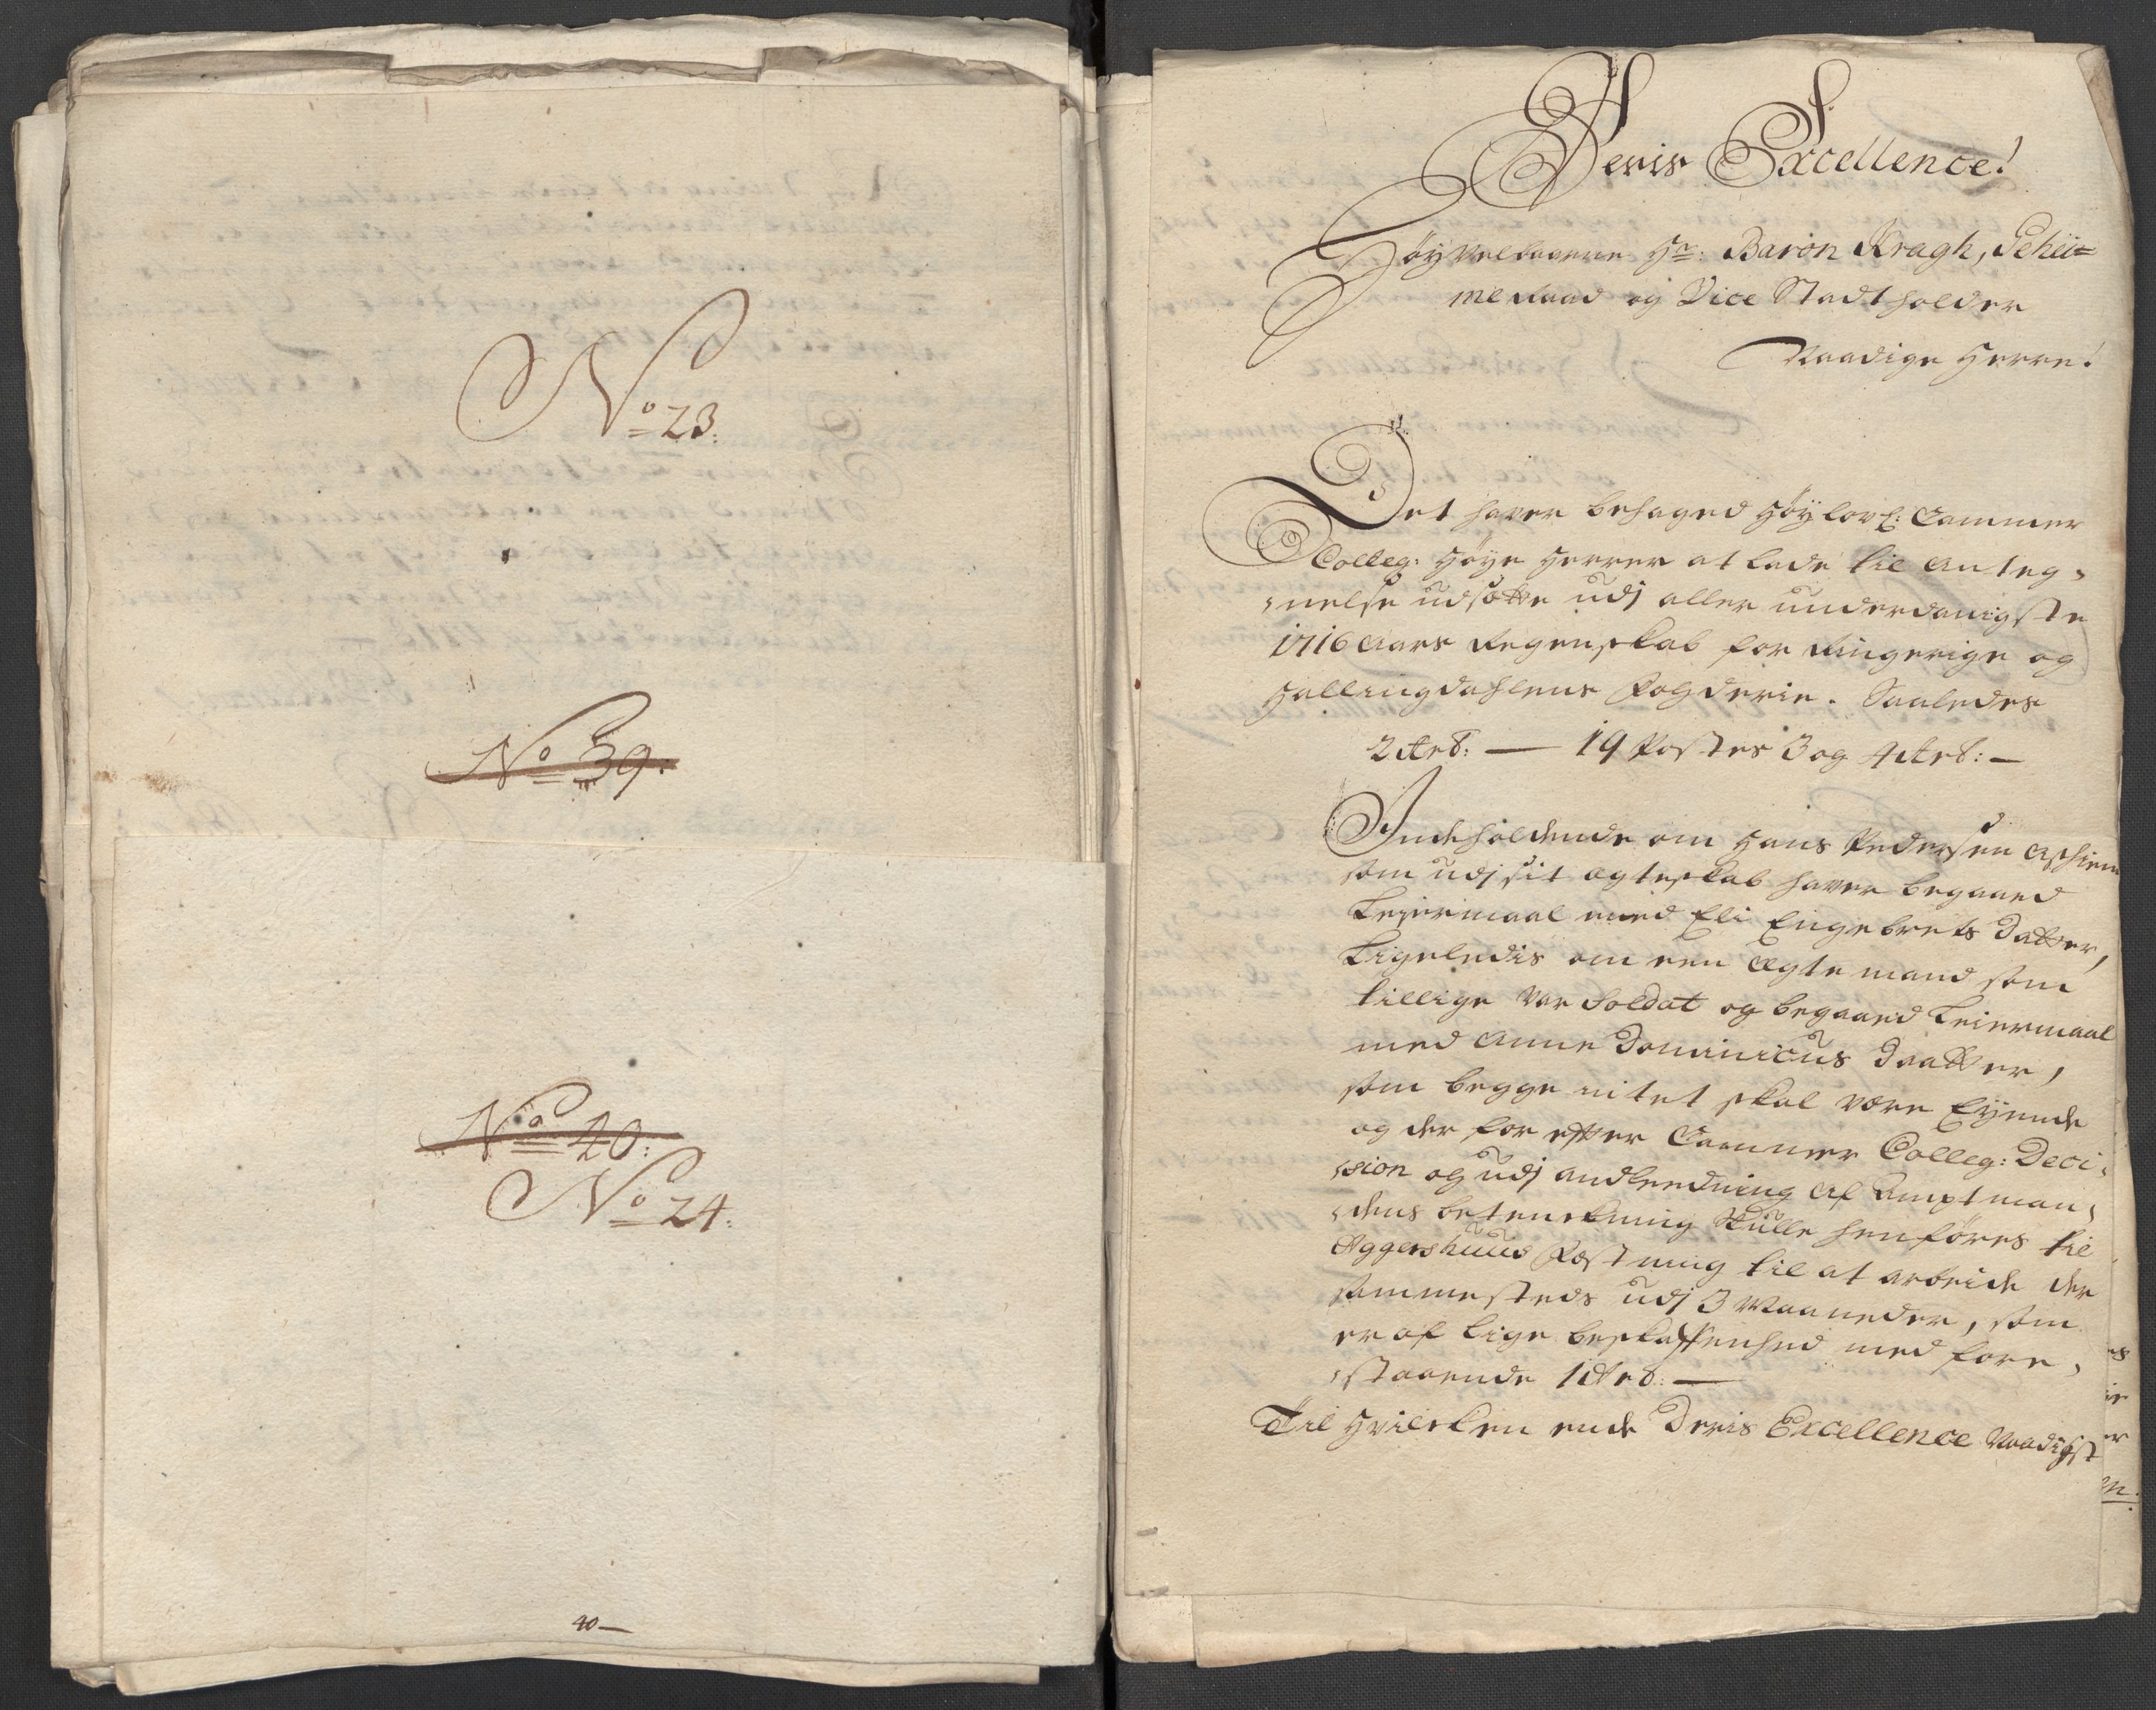 No 23.
No 39.
No 40.
No 24.
40 —
Deris Excellence!
Høÿvelbaarne Hr: Baron Kragh, Geheii=
me Raad og Vice Stadtholder
Naadige Herre!
Det haver behaged Høÿlovl: Cammer
Colleg: Høÿe Herrer at lade til Anteg,
,nelse udsætte udj aller underdanigste
1716 Aars Regenskab for Ringerige og
Hallingdahlens Fogderie. Saaledes
2det: — 19 Postes 3 og 4det: —
Indeholdende om Hans Pedersen
som udj sit ægteskab haver begaaed
Leiermaal med Eli Engebrets Datter,
Ligeledis om een Ægte mand som
tillige var Soldat og begaaed Leiermaal
med Anne Dominicus Daatter,
som begge intet skal være Eÿende
og der for efter Cammer Colleg: Deci,
,sion og udj andleedning af Amptman,
,dens betenckning skulle henføres til
Aggershuus Fæstning til at arbeide der
sammesteds udj 3 Maaneder, som
er af lige beskaffenhed med fore,
,staaende 1det: —
Til Hvilcken ende Deris Excellence Naadigst